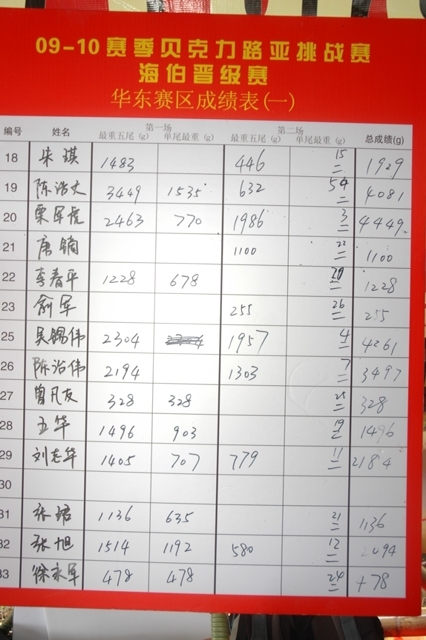 09-10赛季贝克力路亚挑战赛
海伯晋级赛
华东赛区成绩表(一)
编号 姓名 第一场 第二场 总成绩(g)
最重五尾(g) 单尾最重(g) 最重五尾(g) 单尾最重(g)
18 朱琪 1483 446 15 1929
19 陈治文 3449 1535 632 59 4081
20 栗军虎 2463 770 1986 3 4449
21 唐镝 1100 22 1100
22 李春平 1228 678 1228
23 俞军 255 26 255
25 吴锡伟 2304 1957 4 4261
26 陈治伟 2194 1303 7 3497
27 曾凡友 328 328 328
28 王华 1496 903 19 1496
29 刘志华 1405 707 779 11 2184
30
31 张 1136 635 21 1136
32 张旭 1514 1192 580 12 2094
33 徐永军 478 478 24 478